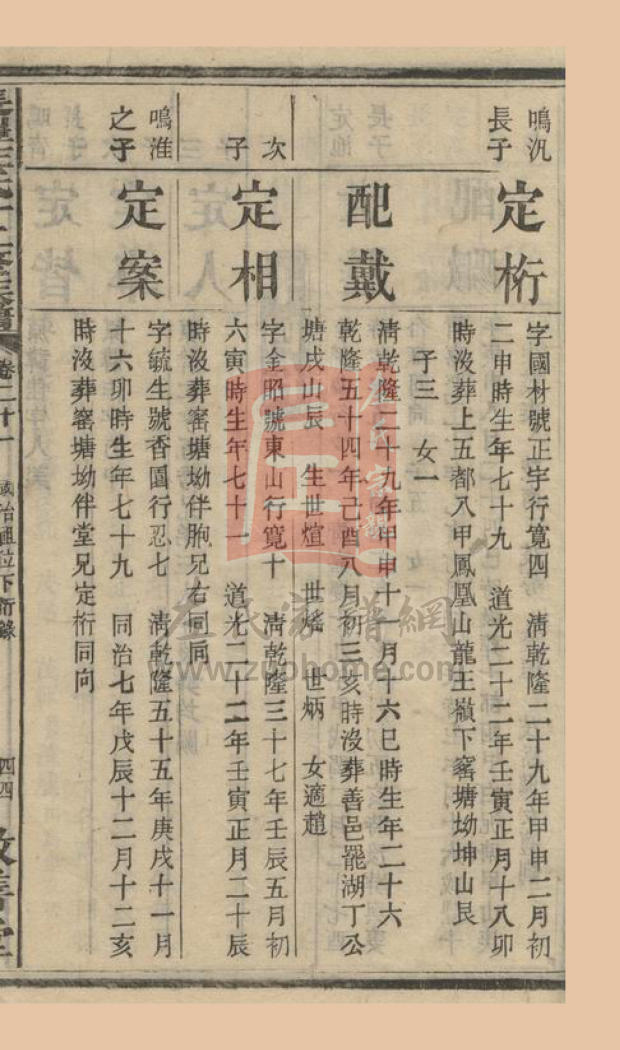 鳴汎
長子
定桁
字國材號正字行寬四　清乾隆二十九年甲申二月初
二申時生年七十九　道光二十二年壬寅正月十八卯
時沒葬上五都八甲鳳凰山龍王嶺下窰塘坳坤山艮
子三　女一
配戴
清乾隆二十九年甲申十一月十六巳時生年二十六
乾隆五十四年己酉八月初三亥時沒葬善邑罷湖丁公
塘戌山辰　生世煊　世熾　世炳　女適趙
次
子
定相
字金昭號東山行寬十　清乾隆三十七年壬辰五月初
六寅時生年七十一　道光二十二年壬寅正月二十辰
時沒葬窰塘坳伴胞兄右同向
鳴淮
之子
定案
字毓生號香圃行忍七　清乾隆五十五年庚戌十一月
十六卯時生年七十九　同治七年戊辰十二月十二亥
時沒葬窰塘坳伴堂兄定桁同向
卷二十一
位下齒錄
四四
左氏家譜網
www.zuohome.com